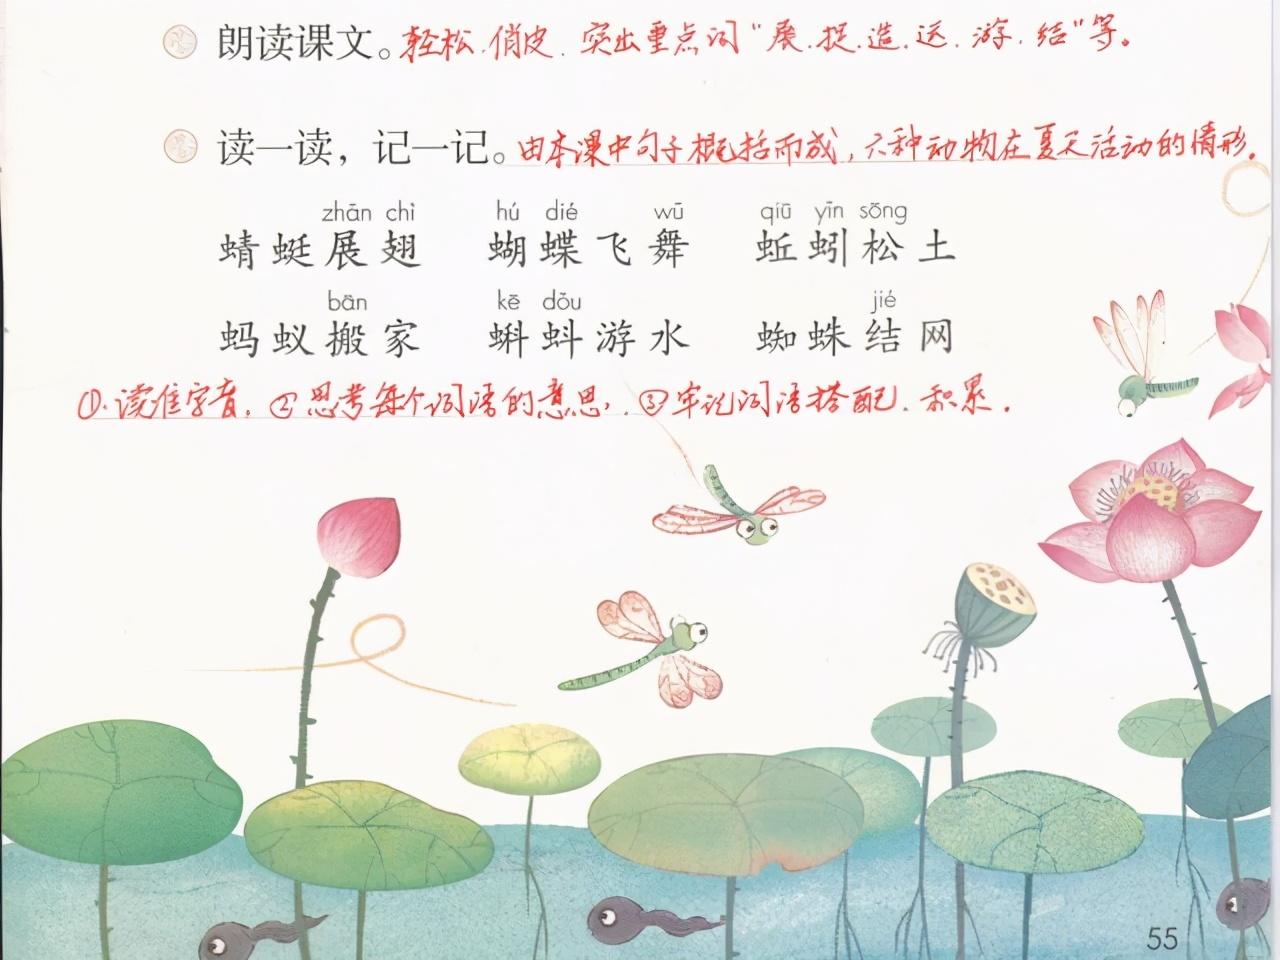 朗读课文。轻松、俏皮、突出重点词“展、捉、造、运、游、结”等。
读一读，记一记。由本课中句子概括而成，六种动物在夏天活动的情形。
zhǎn chì hú dié wǔ qiū yǐn sōng
蜻蜓展翅 蝴蝶飞舞 蚯蚓松土
bān kē dǒu jié
蚂蚁搬家 蝌蚪游水 蜘蛛结网
①.读准字音，②思考每个词语的意思，③牢记词语搭配、积累。
55